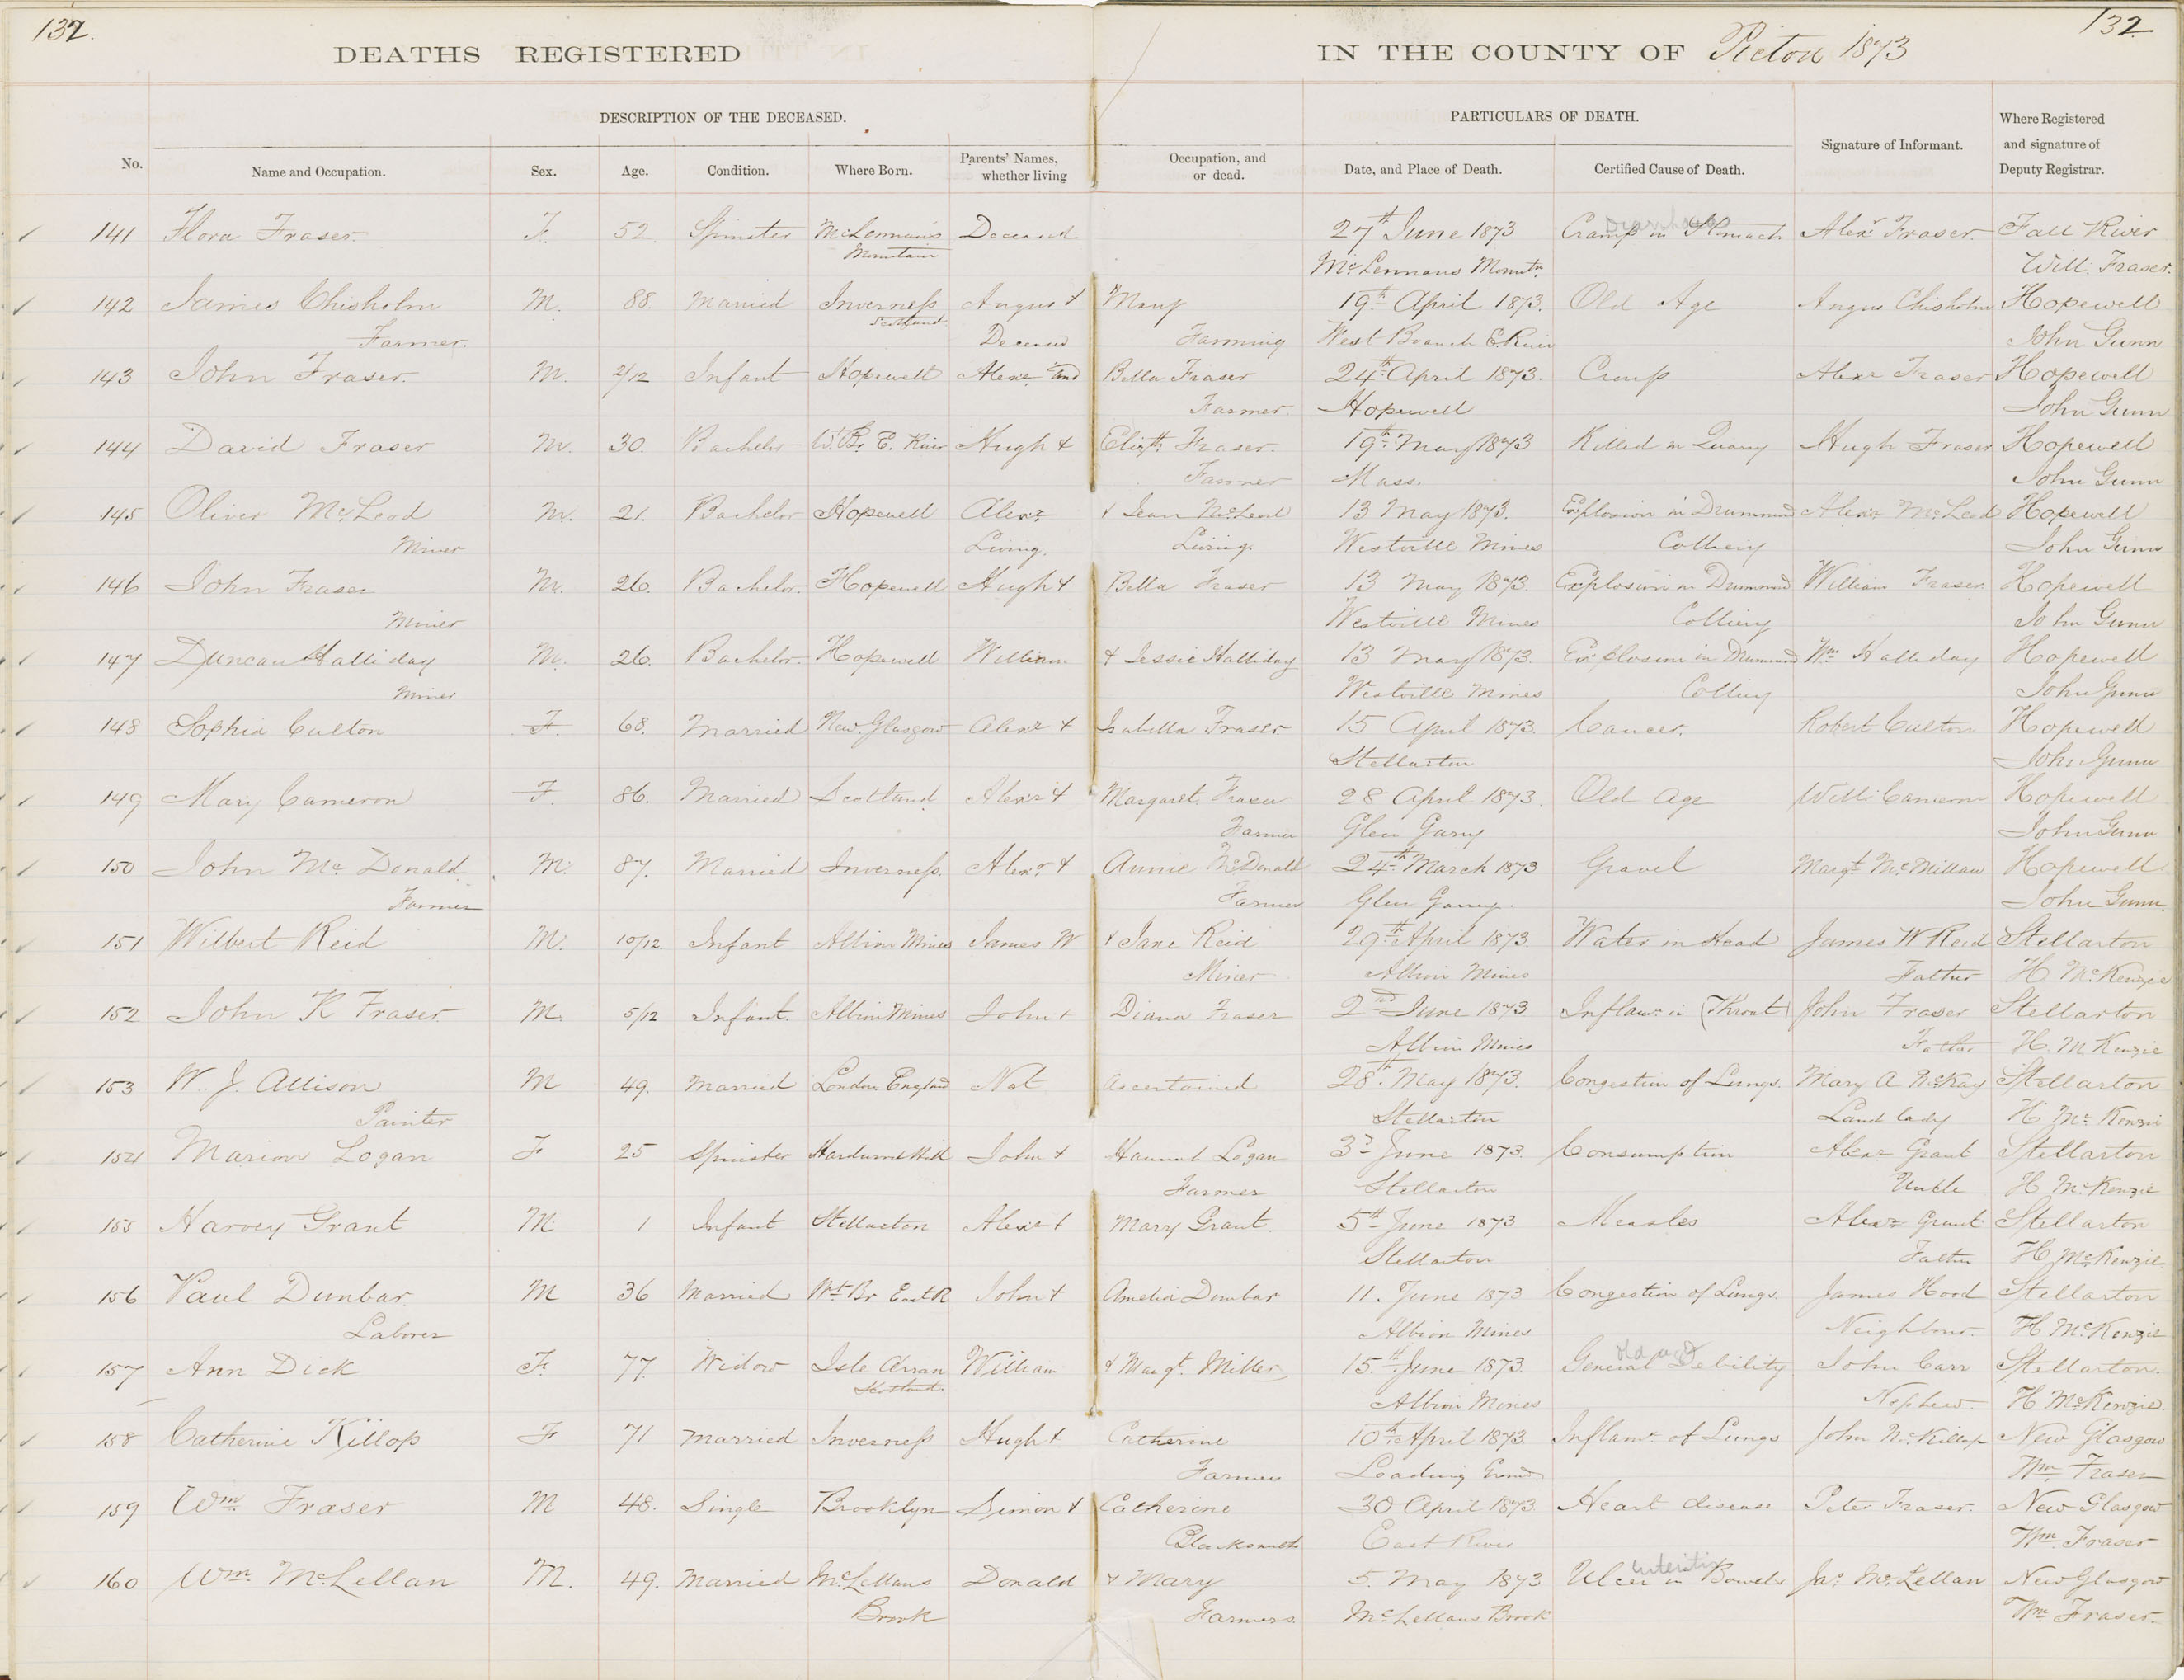 132. 132
DEATHS REGISTERED IN THE COUNTY OF Pictou 1873
DESCRIPTION OF THE DECEASED. PARTICULARS OF DEATH. Where Registered and signature of Deputy Registrar.
No. Name and Occupation. Sex. Age. Condition. Where Born. Parents' Names, whether living Occupation, and or dead. Date, and Place of Death. Certified Cause of Death. Signature of Informant.
141 Flora Fraser. F. 52. Spinster McLennan's Deceased 27th June 1873 Cramp in Stomach Alexr Fraser. Fall River
Mountain McLennans Mountn Will. Fraser.
142 James Chisholm M. 88. Married Inverness Angus & Mary 19th April 1873. Old Age Angus Chisholm Hopewell
Farmer. Scotland Deceased Farming West Branch E. River John Gunn
143 John Fraser. M. 2/12 Infant Hopewell Alexr and Bella Fraser 24th April 1873. Croup Alexr Fraser Hopewell
Farmer. Hopewell John Gunn
144 David Fraser M. 30. Bachelor W. Br. E. River Hugh & Elizth Fraser. 19th May 1873 Killed in Quarry Hugh Fraser Hopewell
Farmer Mass. John Gunn
145 Oliver McLeod M. 21. Bachelor Hopewell Alexr & Jean McLeod 13 May 1873. Explosion in Drummond Alexr McLeod Hopewell
Miner Living. Living. Westville Mines Colliery John Gunn
146 John Fraser M. 26. Bachelor. Hopewell Hugh & Bella Fraser 13 May 1873. Explosion in Drummond William Fraser. Hopewell
Miner Westville Mines Colliery John Gunn
147 Duncan Halliday M. 26. Bachelor. Hopewell William & Jessie Halliday 13 May 1873. Explosion in Drummond Wm Halliday Hopewell
Miner Westville Mines Colliery John Gunn
148 Sophia Culton F. 68. Married New Glasgow Alexr & Isabella Fraser 15 April 1873. Cancer. Robert Culton Hopewell
Stellarton John Gunn
149 Mary Cameron F. 86. Married Scotland Alexr & Margaret Fraser 28 April 1873. Old Age Will. Cameron Hopewell
Farmer Glen Garry John Gunn
150 John McDonald M. 87. Married Inverness. Alexr & Annie McDonald 24th March 1873 Gravel Margt McMillan Hopewell
Farmer Farmer Glen Garry. John Gunn.
151 Wilbert Reid M. 10/12. Infant Albion Mines James W & Jane Reid 29th April 1873. Water in Head James W Reid Stellarton
Miner Albion Mines Father H McKenzie
152 John K Fraser M. 5/12 Infant. Albion Mines John & Diana Fraser 2nd June 1873 Inflamn in (Throat) John Fraser Stellarton
Albion Mines Father H. McKenzie
153 W. J. Allison M 49. Married London England Not ascertained 28th May 1873. Congestion of Lungs. Mary A McKay Stellarton
Painter Stellarton Land lady H McKenzie
154 Marion Logan F 25 Spinster Hardwood Hill John & Hannah Logan 3d June 1873. Consumption Alexr Grant Stellarton
Farmer Stellarton Unkle H McKenzie
155 Harvey Grant M 1 Infant Stellarton Alexr & Mary Grant. 5th June 1873 Measles Alexr Grant Stellarton
Stellarton Father H McKenzie
156 Paul Dunbar M 36 Married Wt Br East R John & Amelia Dunbar 11. June 1873 Congestion of Lungs. James Hood Stellarton
Laborer Albion Mines Neighbour. H McKenzie
old age
157 Ann Dick F. 77. Widow Isle Arran William & Margt. Miller 15th June 1873. General Debility John Carr Stellarton.
Scotland. Albion Mines Nephew. H McKenzie.
158 Catherine Killop F 71 Married Inverness Hugh & Catherine 10th April 1873. Inflamn of Lungs John McKillop New Glasgow
Farmer Loading Ground Wm Fraser
159 Wm. Fraser M 48. Single Brooklyn Simon & Catherine 30 April 1873. Heart disease Peter Fraser. New Glasgow
Blacksmith East River Wm. Fraser
enteritis
160 Wm. McLellan M. 49. Married McLellans Donald & Mary 5. May 1873 Ulcer in Bowels Jas McLellan New Glasgow
Brook Farmers. McLellans Brook Wm Fraser.